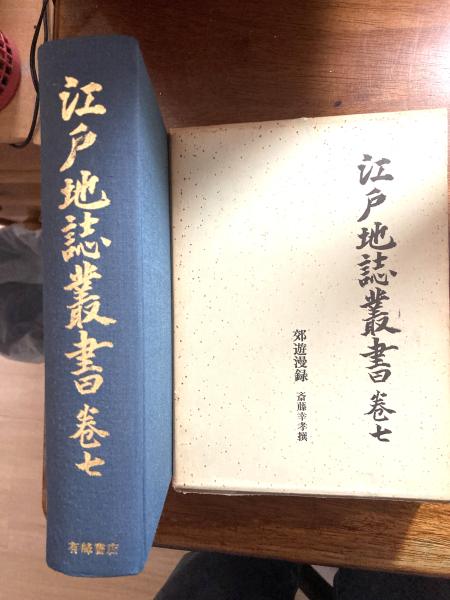 江戸地誌叢書 巻七
有峰書店
江戸地誌叢書 巻七
郊遊漫録 斎藤幸孝撰